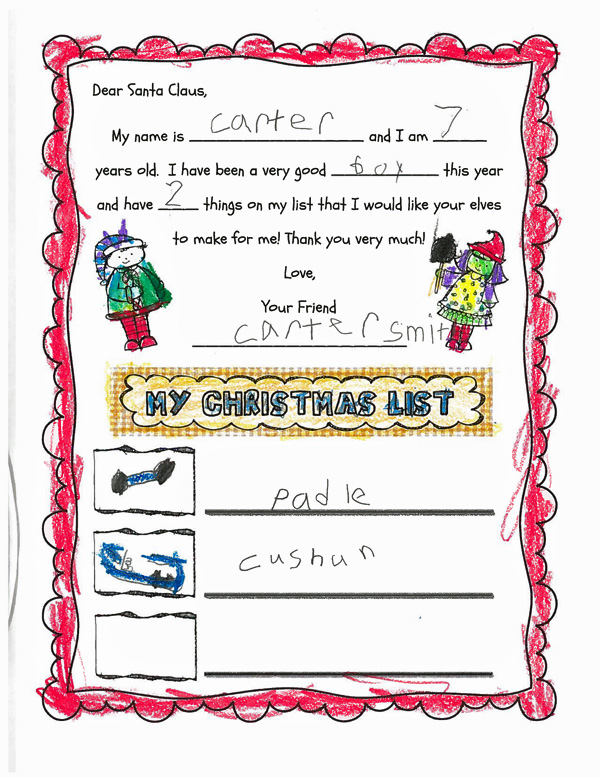 Dear Santa Claus,
My name is carter and I am 7
years old. I have been a very good boy this year
and have 2 things on my list that I would like your elves
to make for me! Thank you very much!
Love,
Your Friend
carter smit
MY CHRISTMAS LIST
padle
cushun